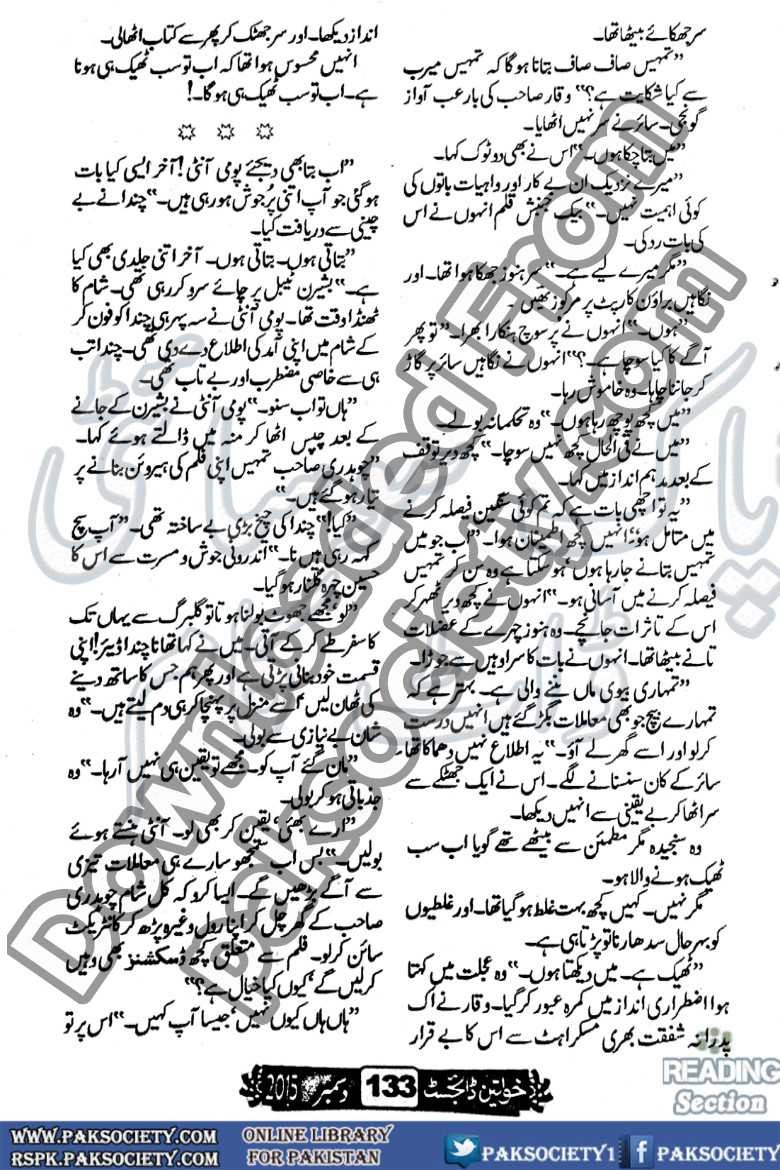 سر جھکائے بیٹھا تھا۔
”تمہیں صاف صاف بتانا ہو گا کہ تمہیں میرب
سے کیا شکایت ہے؟“ وقار صاحب کی بارعب آواز
گونجی۔ سائر نے سر نہیں اٹھایا۔
”میں بتا چکا ہوں۔“ اس نے بھی دو ٹوک کہا۔
”میرے نزدیک ان بے کار اور واہیات باتوں کی
کوئی اہمیت نہیں۔“ بیک جنبش قلم انہوں نے اس
کی بات رد کی۔
”مگر میرے لیے ہے۔“ سر ہنوز جھکا ہوا تھا۔ اور
نگاہیں براؤن کارپٹ پر مرکوز تھیں۔
”ہوں۔“ انہوں نے پر سوچ ہنکارا بھرا۔ ”تو پھر
آگے کا کیا سوچا ہے۔؟“ انہوں نے نگاہیں سائر پر گاڑ
کر جاننا چاہا۔ وہ خاموش رہا۔
”میں کچھ پوچھ رہا ہوں۔“ وہ تحکمانہ بولے۔
”میں نے فی الحال کچھ نہیں سوچا۔“ کچھ دیر توقف
کے بعد مدہم انداز میں کہا۔
”یہ تو اچھی بات ہے کہ تم کوئی سنگین فیصلہ کرنے
میں متامل ہو‘ انہیں کچھ اطمینان ہوا۔ ”اب جو میں
تمہیں بتانے جا رہا ہوں‘ ہو سکتا ہے وہ سن کر تمہیں
فیصلہ کرنے میں آسانی ہو۔“ انہوں نے کچھ دیر ٹھہر کر
اس کے تاثرات جانچے۔ وہ ہنوز چہرے کے عضلات
تانے بیٹھا تھا۔ انہوں نے بات کا سرا وہیں سے جوڑا۔
”تمہاری بیوی ماں بننے والی ہے۔ بہتر ہے کہ
تمہارے بیچ جو بھی معاملات بگڑ گئے ہیں انہیں درست
کر لو اور اسے گھر لے آؤ۔“ یہ اطلاع نہیں دھماکا تھا۔
سائر کے کان سنسنانے لگے۔ اس نے ایک جھٹکے سے
سر اٹھا کر بے یقینی سے انہیں دیکھا۔
وہ سنجیدہ مگر مطمئن سے بیٹھے تھے گویا اب سب
ٹھیک ہونے والا ہو۔
مگر نہیں۔ کہیں کچھ بہت غلط ہو گیا تھا۔ اور غلطیوں
کو بہر حال سدھارنا تو پڑتا ہی ہے۔
”ٹھیک ہے۔ میں دیکھتا ہوں۔“ وہ عجلت میں کہتا
ہوا اضطراری انداز میں کمرہ عبور کر گیا۔ وقار نے اک
پدرانہ شفقت بھری مسکراہٹ سے اس کا بے قرار
انداز دیکھا۔ اور سر جھٹک کر پھر سے کتاب اٹھالی۔
انہیں محسوس ہوا تھا کہ اب تو سب ٹھیک ہی ہونا
ہے۔ اب تو سب ٹھیک ہی ہو گا۔!
”اب بتا بھی دیجئے پومی آنٹی! آخر ایسی کیا بات
ہو گئی جو آپ اتنی پُرجوش ہو رہی ہیں۔“ چندا نے بے
چینی سے دریافت کیا۔
”بتاتی ہوں۔ بتاتی ہوں۔ آخر اتنی جلدی بھی کیا
ہے۔“ بشیرن ٹیبل پر چائے سرو کر رہی تھی۔ شام کا
ٹھنڈا وقت تھا۔ پومی آنٹی نے سہ پہر ہی چندا کو فون کر
کے شام میں اپنی آمد کی اطلاع دے دی تھی۔ چندا تب
ہی سے خاصی مضطرب اور بے تاب تھی۔
”ہاں تو اب سنو۔“ پومی آنٹی نے بشیرن کے جانے
کے بعد چپس اٹھا کر منہ میں ڈالتے ہوئے کہا۔
”چوہدری صاحب تمہیں اپنی فلم کی ہیروئن بنانے پر
تیار ہو گئے ہیں۔“
”کیا!“ چندا کی چیخ بڑی بے ساختہ تھی۔ ”آپ سچ
کہہ رہی ہیں نا۔“ اندرونی جوش و مسرت سے اس کا
حسین چہرہ گلنار ہو گیا۔
”لو‘ مجھے جھوٹ بولنا ہوتا تو گلبرگ سے یہاں تک
کا سفر طے کر کے آتی۔ میں نے کہا تھا نا چندا ڈیئر! اپنی
قسمت خود بنانی پڑتی ہے اور پھر ہم جس کا ساتھ دینے
کی ٹھان لیں‘ اسے منزل پر پہنچا کر ہی دم لیتے ہیں۔“ وہ
شان بے نیازی سے بولی۔
”مان گئے آپ کو۔ مجھے تو یقین ہی نہیں آ رہا۔“ وہ
جذباتی ہو کر بولی۔
”ارے بھئی‘ یقین کر بھی لو۔ آنٹی ہنستے ہوئے
بولیں۔“ بس اب سمجھو سارے ہی معاملات تیزی
سے آگے بڑھیں گے۔ ایسا کرو کہ کل شام چوہدری
صاحب کے گھر چل کر اپنا رول وغیرہ پڑھ کر کانٹریکٹ
سائن کر لو۔ فلم سے متعلق کچھ ڈسکشنز بھی وہیں
کر لیں گے‘ کیوں کیا خیال ہے؟“
”ہاں ہاں کیوں نہیں‘ جیسا آپ کہیں۔“ اس پر تو
خواتین ڈائجسٹ 133 دسمبر 2015
Downloaded From
Paksociety.com
READING
Section
WWW.PAKSOCIETY.COM
RSPK.PAKSOCIETY.COM
ONLINE LIBRARY
FOR PAKISTAN
PAKSOCIETY1
PAKSOCIETY